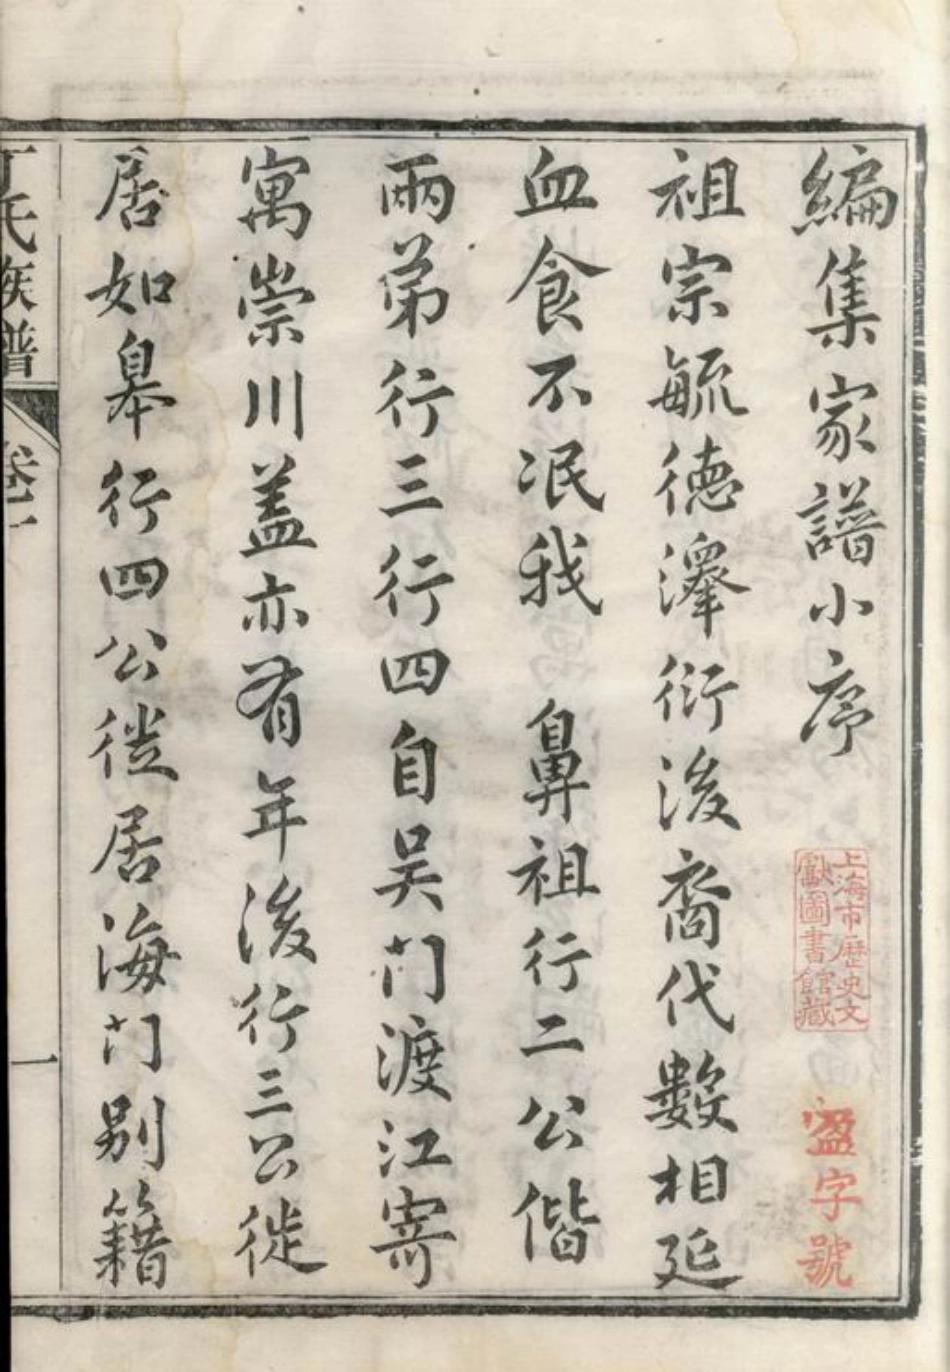 編集家譜小序
上海市歷史文
獻圖書館藏
盈字號
祖宗毓德澤衍後裔代數相延
血食不泯我　鼻祖行二公偕
兩弟行三行四自吴门渡江寄
寓崇川盖亦有年後行三公徙
居如皋行四公徙居海门别籍
丁氏族譜
卷一
一